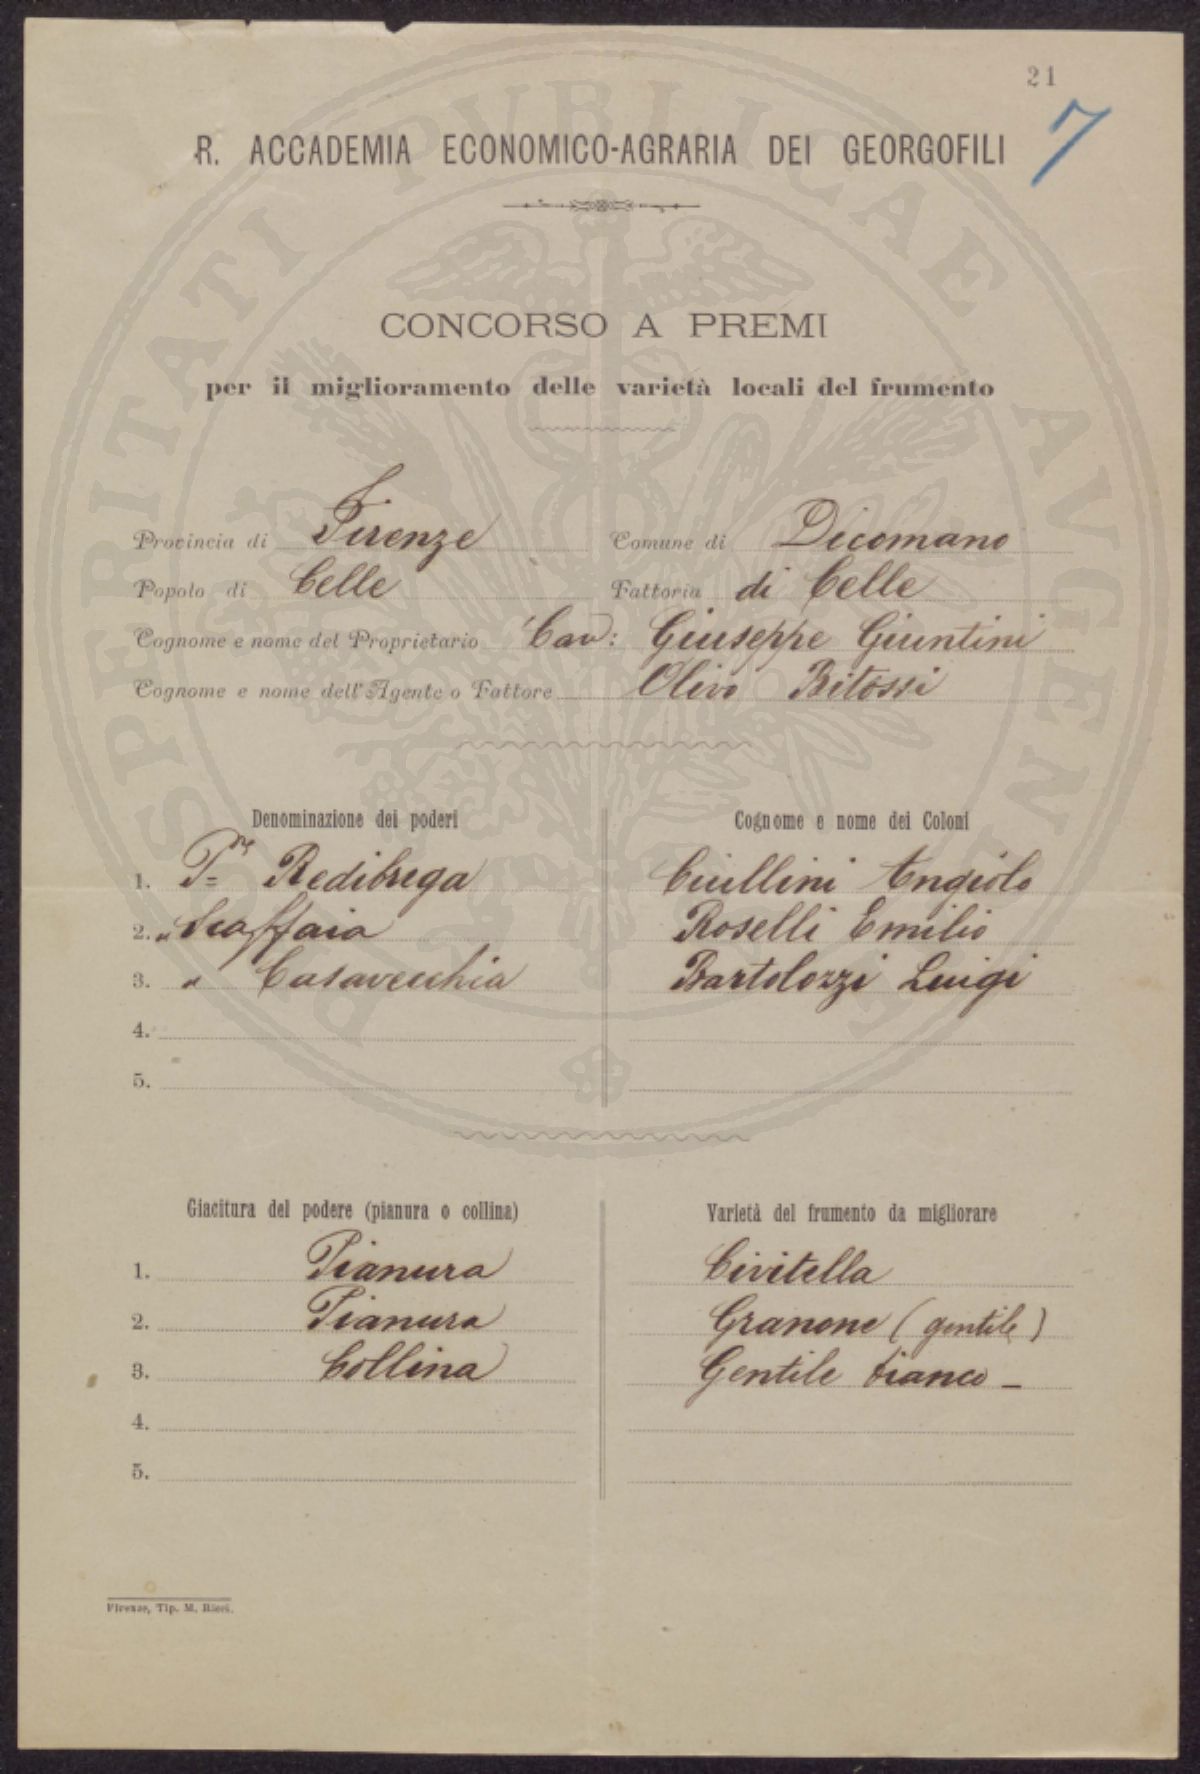 21
7
R. ACCADEMIA ECONOMICO-AGRARIA DEI GEORGOFILI
CONCORSO A PREMI
per il miglioramento delle varietà locali del frumento
Provincia di Firenze Comune di Dicomano
Popolo di Celle Fattoria di Celle
Cognome e nome del Proprietario Cav: Giuseppe Giuntini
Cognome e nome dell'Agente o Fattore Olivo Bitossi
Denominazione dei poderi Cognome e nome dei Coloni
1. Pre Redibrega Ciullini Angiolo
2. „ Scaffaia Roselli Emilio
3. „ Casavecchia Bartolozzi Luigi
4.
5.
Giacitura del podere (pianura o collina) Varietà del frumento da migliorare
1. Pianura Civitella
2. Pianura Granone (gentile)
3. Collina Gentile bianco –
4.
5.
Firenze, Tip. M. Ricci.
PROSPERITATI PUBLICAE AVGENDAE